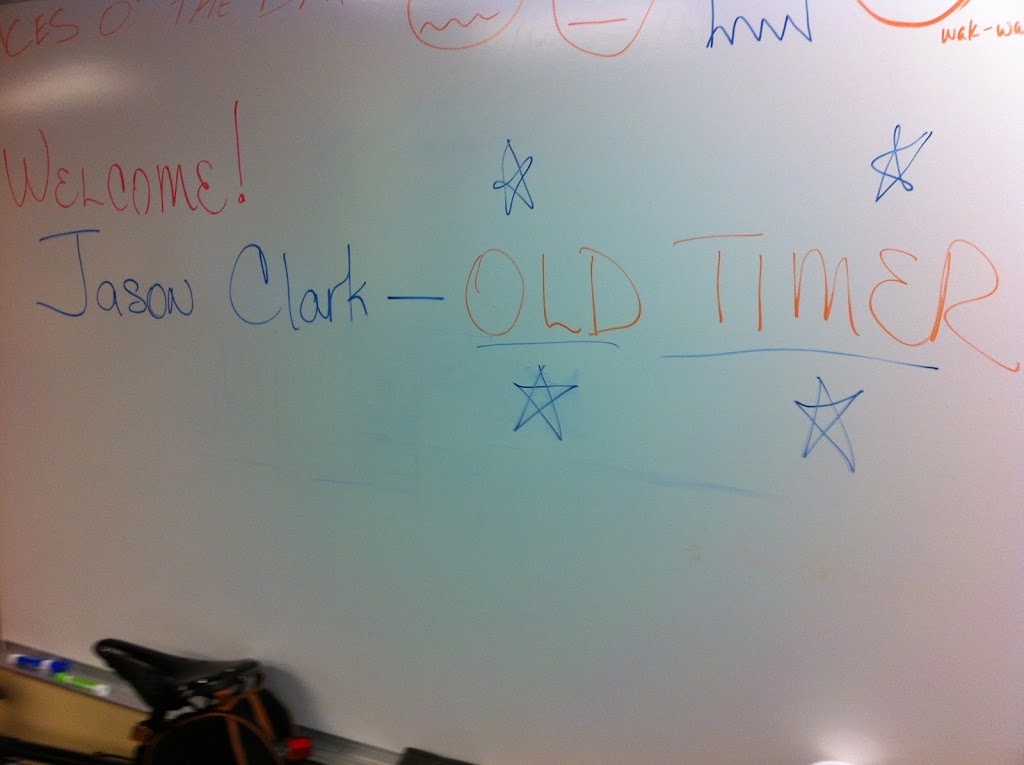 O' THE
wak-wa
WELCOME!
Jason Clark — OLD TIMER